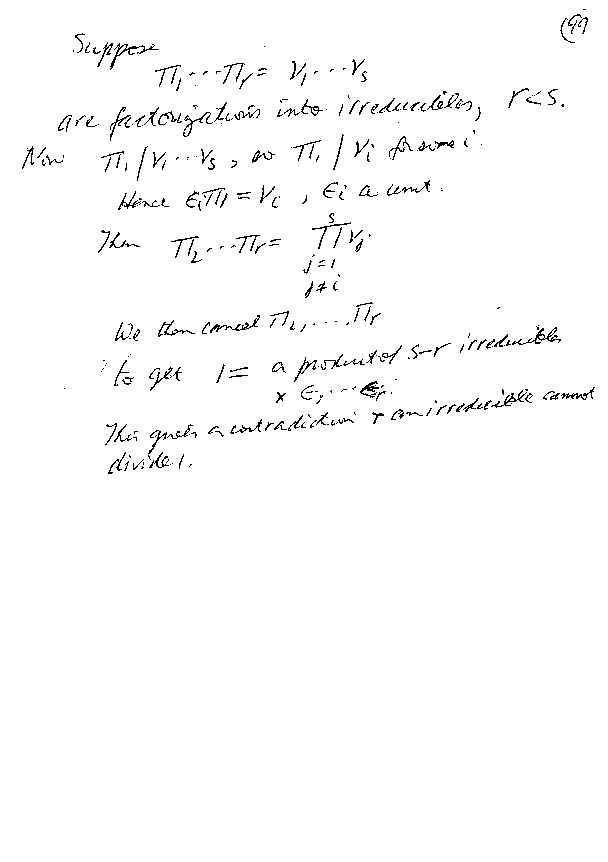 (99
Suppose
π₁ ⋯ πᵣ = γ₁ ⋯ γₛ
are factorizations into irreducibles, r<s.
Now π₁ / γ₁ ⋯ γₛ, so π₁ / γᵢ for some i.
Hence εᵢπ₁ = γᵢ, εᵢ a unit.
Then π₂ ⋯ πᵣ = ∏ γⱼ.
s
j=1
j≠i
We then cancel π₂, ⋯, πᵣ
to get 1 = a product of s-r irreducibles
x ε₁ ⋯ εᵣ.
This gives a contradiction & an irreducible cannot
divide 1.